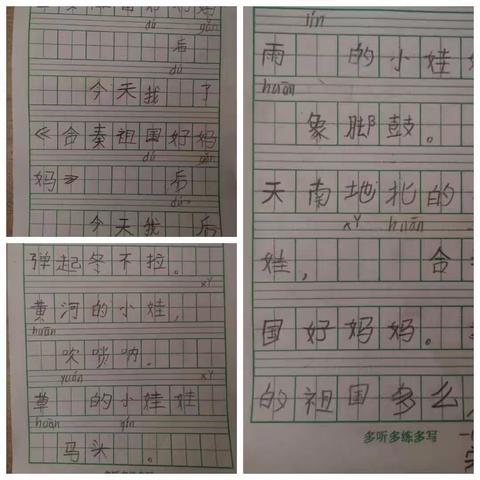 dú gǎn
后
dú
今天我 了
《合奏祖国好妈
dú gǎn
妈》 后
dú
今天我 后
弹起冬不拉。
xǐ
黄河的小娃,
huān
吹唢呐.
yuán xǐ
草 的小娃娃
huān qín
马头 。
lín
雨 的小娃
huān
象脚鼓。
天南地北的
xǐ huān
娃, 合
国好妈妈。
的祖国多么
多听多练多写